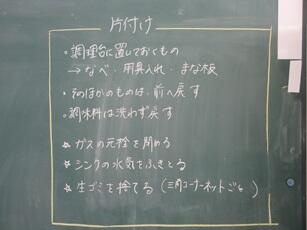 片付け
・調理台に置いておくもの
→なべ・用具入れ・まな板
・そのほかのものは、前へ戻す
・調味料は洗わず戻す
☆ガスの元栓を閉める
☆シンクの水気をふきとる
☆生ゴミを捨てる(三角コーナーネットごと)